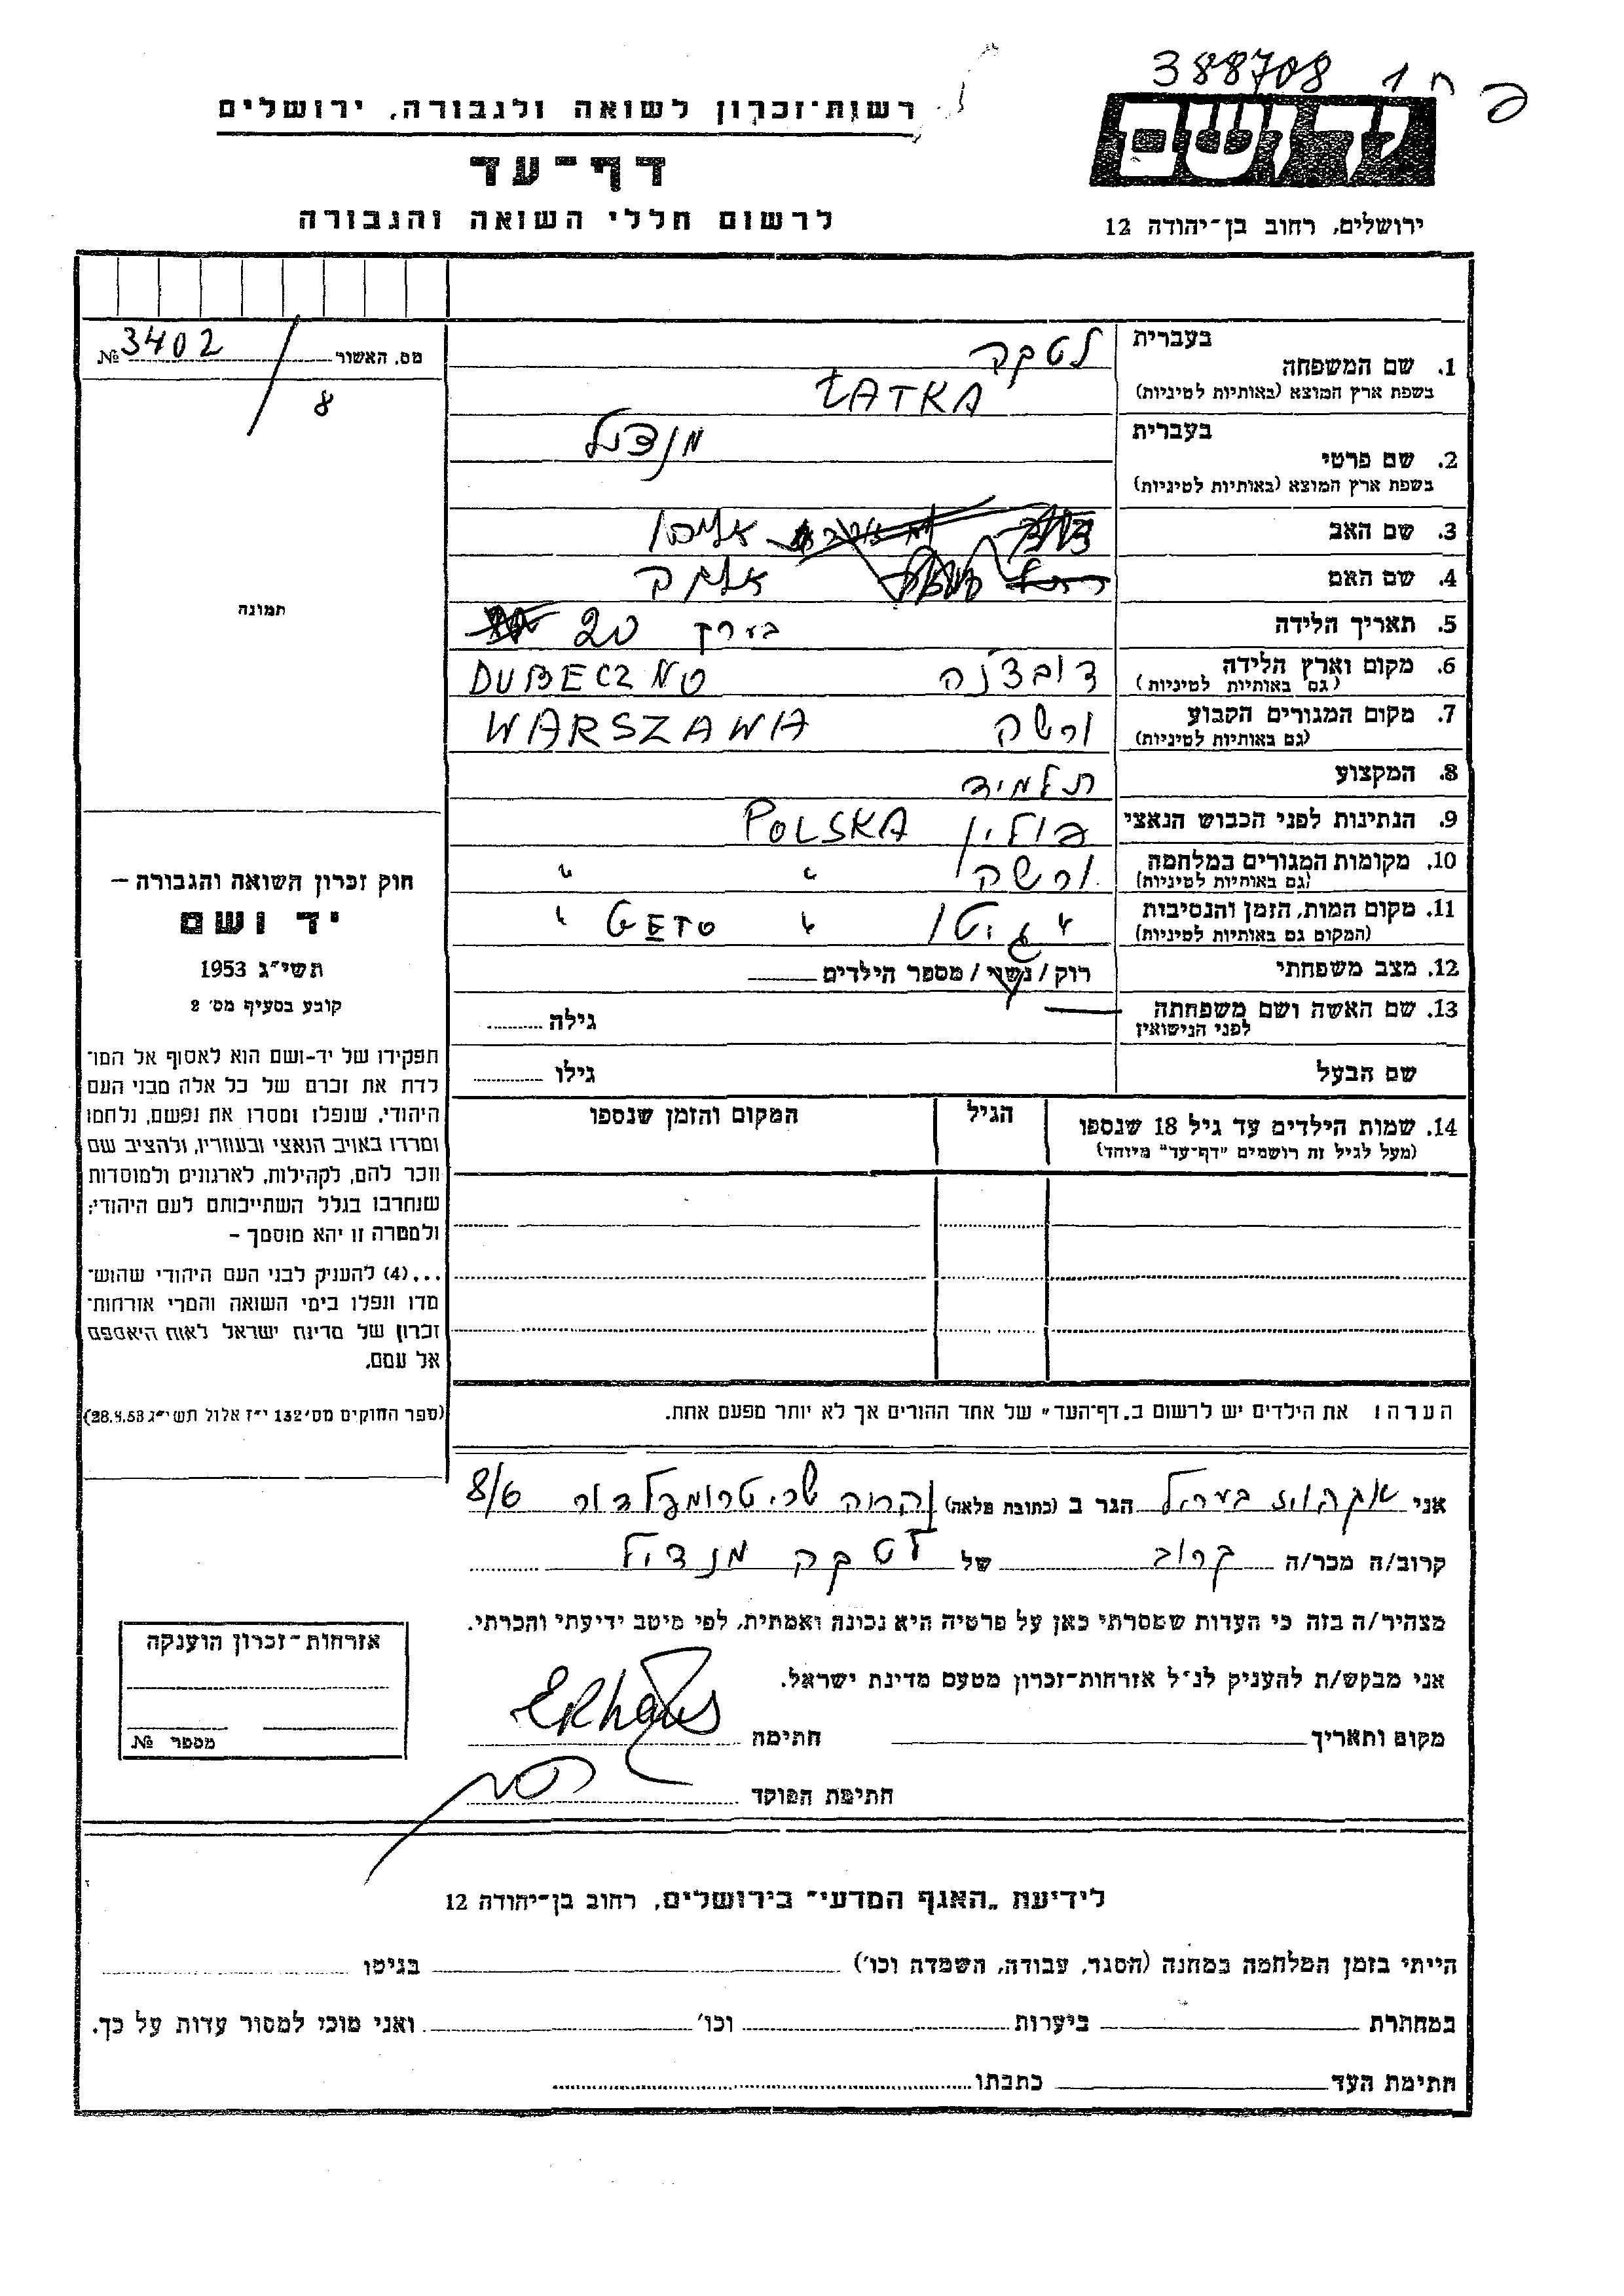 388708 ח 1
רשות־זכרון לשואה ולגבורה, ירושלים
ידושם
דף־עד
ירושלים, רחוב בן־יהודה 12
לרשום חללי השואה והגבורה
מס. האשור № 3402 / 8
1. שם המשפחה בעברית לטקה
בשפת ארץ המוצא (באותיות לטיניות) ŁATKA
2. שם פרטי בעברית מנדל
בשפת ארץ המוצא (באותיות לטיניות)
3. שם האב
4. שם האם
5. תאריך הלידה בערך 20
6. מקום וארץ הלידה (גם באותיות לטיניות) דובצ'נה DUBECZNO
7. מקום המגורים הקבוע (גם באותיות לטיניות) ורשה WARSZAWA
8. המקצוע תלמיד
9. הנתינות לפני הכבוש הנאצי פולין POLSKA
10. מקומות המגורים במלחמה (גם באותיות לטיניות) ורשה " "
11. מקום המות, הזמן והנסיבות (המקום גם באותיות לטיניות) " גיטו " GETO "
12. מצב משפחתי רוק / נשוי / מספר הילדים
13. שם האשה ושם משפחתה לפני הנישואין — גילה
שם הבעל גילו
14. שמות הילדים עד גיל 18 שנספו הגיל המקום והזמן שנספו
(מעל לגיל זה רושמים "דף־עד" מיוחד)
תמונה
חוק זכרון השואה והגבורה –
יד ושם
תשי"ג 1953
קובע בסעיף מס' 2
תפקידו של יד-ושם הוא לאסוף אל המו־
לדת את זכרם של כל אלה מבני העם
היהודי, שנפלו ומסרו את נפשם, נלחמו
ומרדו באויב הנאצי ובעוזריו, ולהציב שם
וזכר להם, לקהילות, לארגונים ולמוסדות
שנחרבו בגלל השתייכותם לעם היהודי;
ולמטרה זו יהא מוסמך –
...(4) להעניק לבני העם היהודי שהוש־
מדו ונפלו בימי השואה והמרי אזרחות־
זכרון של מדינת ישראל לאות היאספם
אל עמם.
(ספר החוקים מס' 132 י"ז אלול תשי"ג 28.8.53)
הערה: את הילדים יש לרשום ב„דף־העד" של אחד ההורים אך לא יותר מפעם אחת.
אני הגר ב (כתובת מלאה) טרומפלדור 8/6
קרוב/ה מכר/ה קרוב של לטקה מנדיל
מצהיר/ה בזה כי העדות שמסרתי כאן על פרטיה היא נכונה ואמתית, לפי מיטב ידיעתי והכרתי.
אני מבקש/ת להעניק לנ"ל אזרחות־זכרון מטעם מדינת ישראל.
מקום ותאריך חתימה
חתימת הפוקד
אזרחות־זכרון הוענקה
מספר №
לידיעת „האגף המדעי" בירושלים, רחוב בן־יהודה 12
הייתי בזמן המלחמה במחנה (הסגר, עבודה, השמדה וכו') בגיטו
במחתרת ביערות וכו' ואני מוכן למסור עדות על כך.
חתימת העד כתבתו